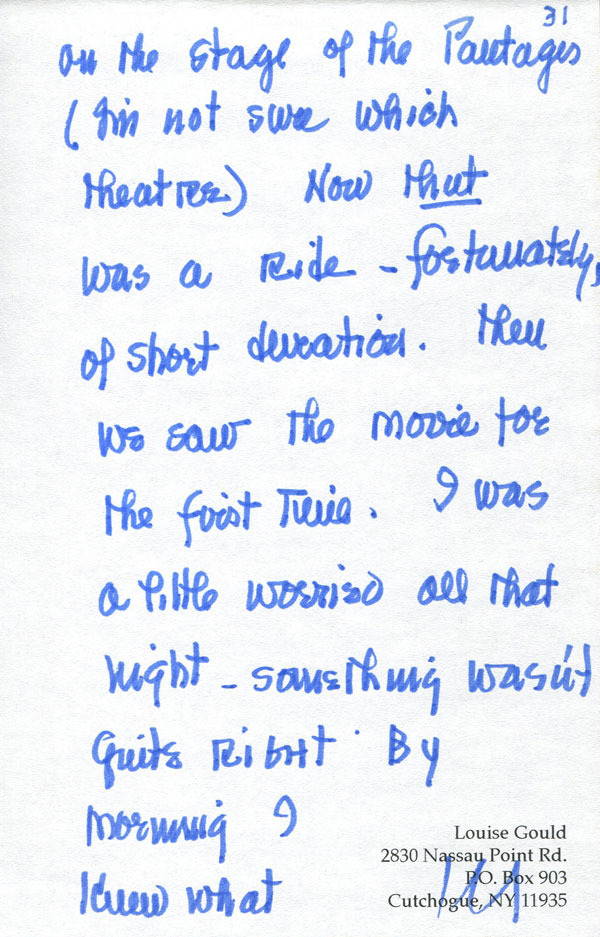 31
on the stage of the Pantages
(I'm not sure which
theatre) Now that
was a ride - fortunately,
of short duration. Then
we saw the movie for
the first time. I was
a little worried all that
night - something wasn't
quite right. By
morning I
knew what
Louise Gould
2830 Nassau Point Rd.
P.O. Box 903
Cutchogue, NY 11935